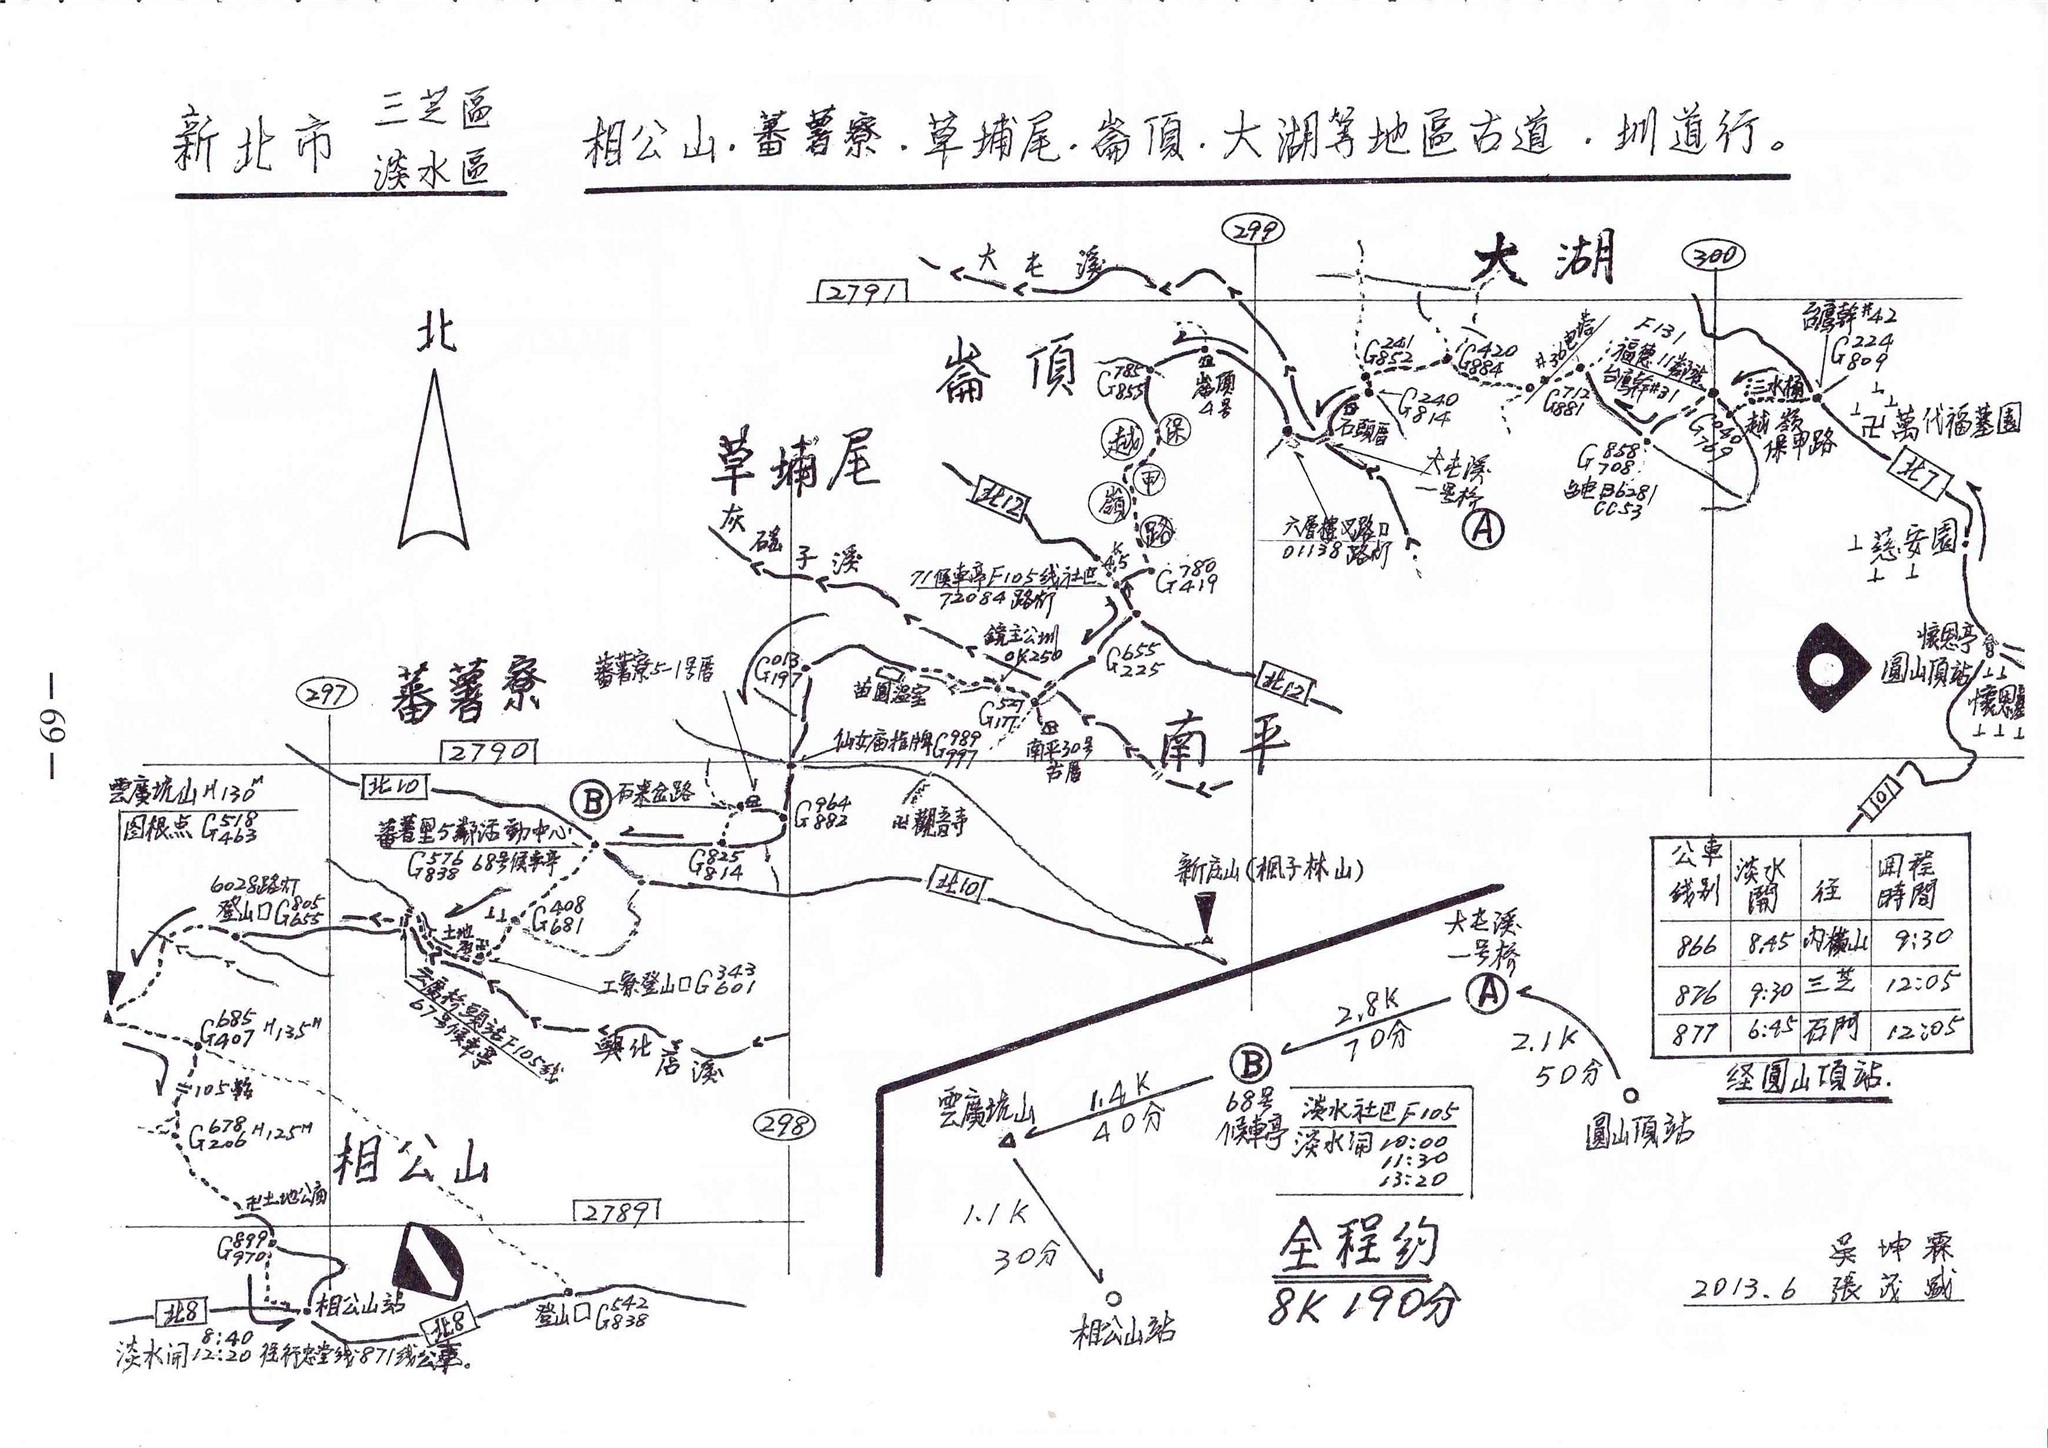 新北市 三芝區 淡水區
相公山．蕃薯寮．草埔尾．崙頂．大湖等地區古道．圳道行。
299
300
大湖
大屯溪
2791
北
崙頂
785
G855
崙頂4号
241
G852
420
G884
#36电塔
F131
台電幹#42
224
G809
三水桶
712
G881
240
G814
石頭厝
越嶺保甲路
卍萬代福墓園
858
G708
台电B6281
CC53
北7
大屯溪一号桥
A
六層樓叉路口
01138路灯
慈安園
懷恩亭
圓山頂站
101
草埔尾
越嶺
保甲路
北12
灰磘子溪
K4.5
780
G419
71候車亭F105线社巴
72084路灯
655
G225
北12
0K250
苗圃温室
527
G177
南平30号古厝
南平
013
G197
蕃薯寮5-1号厝
蕃薯寮
297
2790
仙女庙指牌G989
997
卍觀音寺
雲廣坑山H130M
图根点G518
463
北10
B
964
G882
蕃薯里5鄰活動中心
576
G838
68号候車亭
825
G814
北10
新庄山(楓子林山)
6028路灯
登山口G805
655
408
G681
土地
工寮登山口G343
601
67号候車亭
興化店溪
685
G407 H135M
678
G206 H125M
298
相公山
卍土地公庙
2789
899
G970
北8
相公山站
北8
登山口G542
838
淡水開 8:40
12:20 往行忠堂线871线公車。
大屯溪一号桥
A
2.8K
70分
2.1K
50分
圓山頂站
B
68号候車亭
1.4K
40分
雲廣坑山
1.1K
30分
相公山站
淡水社巴F105
淡水開 10:00
11:30
13:20
全程約
8K 190分
公車线別 淡水開 往 回程時間
866 8:45 內橫山 9:30
876 9:30 三芝 12:05
877 6:45 石門 12:05
经圓山頂站.
吳坤霖
2013.6 張茂盛
—69—